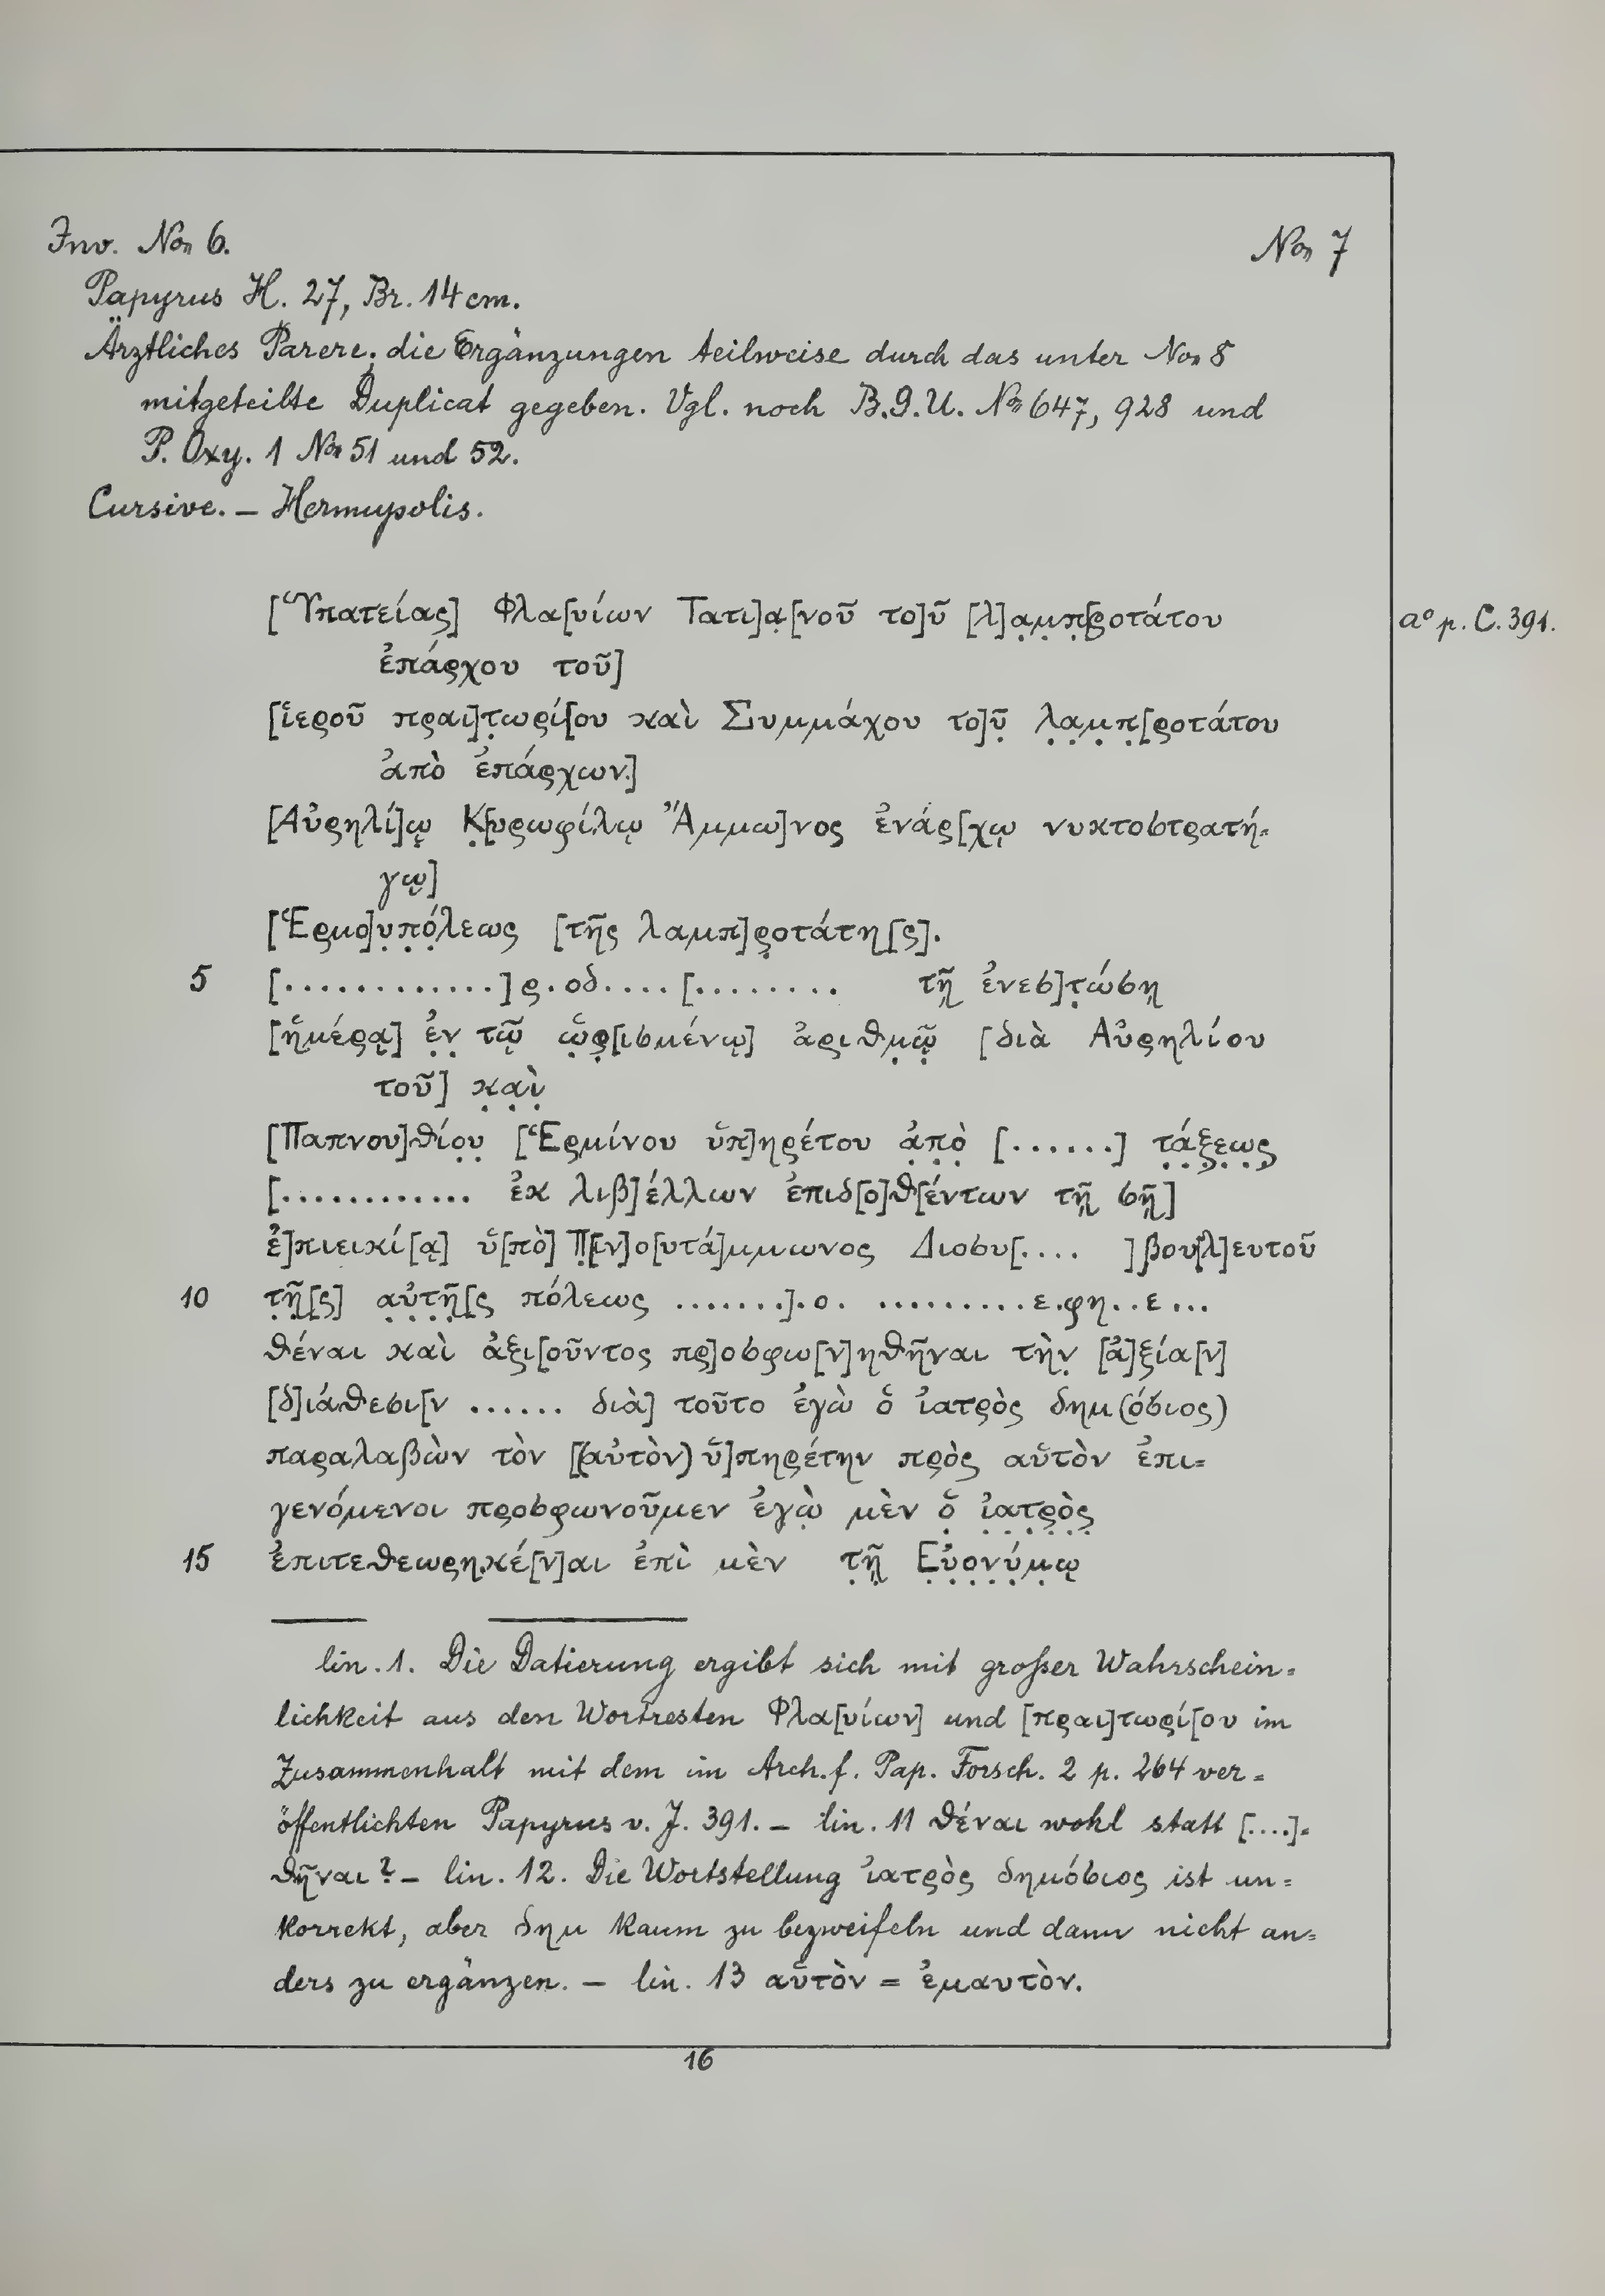 Inv. No 6. No 7
Papyrus H. 27, Br. 14 cm.
Ärztliches Parere; die Ergänzungen teilweise durch das unter No 8
mitgeteilte Duplicat gegeben. Vgl. noch B.G.U. No 647, 928 und
P. Oxy. 1 No 51 und 52.
Cursive. — Hermupolis.
[Ὑπατείας] Φλα[υίων Τατι]α̣[νοῦ το]ῦ [λ]α̣μ̣π̣[ροτάτου a° p. C. 391.
ἐπάρχου τοῦ]
[ἱεροῦ πραι]τ̣ωρί[ου καὶ Συμμάχου το]ῦ̣ λ̣α̣μ̣π̣[ροτάτου
ἀπὸ ἐπάρχων]
[Αὐρηλί]ῳ̣ Κ̣[υρωφίλῳ Ἄμμω]νος ἐνάρ[χῳ νυκτοστρατή-
γῳ]
[Ἑρμο]υ̣π̣ό̣λεως [τῆς λαμπ]ρ̣οτάτη[ς].
5 [.............]ρ.οδ....[........ τῇ ἐνεσ]τ̣ώσῃ
[ἡμέρᾳ] ἐ̣ν̣ τῷ ὡ̣ρ̣[ισμένῳ] ἀριθμ̣ῷ̣ [διὰ Αὐρηλίου
τοῦ] κ̣α̣ὶ̣
[Παπνου]θίο̣υ̣ [Ἑρμίνου ὑπ]ηρέτου ἀ̣π̣ὸ̣ [......] τ̣ά̣ξ̣ε̣ω̣ς̣
[............ ἐκ λιβ]έλλων ἐπιδ[ο]θ[έντων τῇ σῇ]
ἐ]πιεικί[ᾳ] ὑ[πὸ] Π̣[ιν]ο[υτά]μμωνος Διοσυ[.... ]βου[λ]ευτοῦ
10 τ̣ῆ̣[ς] α̣ὐ̣τ̣ῆ̣[ς πόλεως .......].ο. ..........ε.φη..ε...
θέναι καὶ ἀξι[οῦντος πρ]οσφω[ν]ηθῆναι τὴν̣ [ἀ]ξία[ν]
[δ]ιάθεσι[ν ...... διὰ] τοῦτο ἐγὼ ὁ ἰατρὸς δημ(όσιος)
παραλαβὼν τὸν [(αὐτὸν) ὑ]πηρέτην πρὸς αὑτὸν ἐπι-
γενόμενοι προσφωνοῦμεν ἐγὼ̣ μὲν ὁ̣ ἰ̣α̣τ̣ρ̣ὸ̣ς̣
15 ἐπιτεθεωρη̣κέ[ν]αι ἐπὶ μὲν τ̣ῇ̣ Ε̣ὐ̣ο̣ν̣ύ̣μ̣ῳ
lin. 1. Die Datierung ergibt sich mit großer Wahrschein-
lichkeit aus den Wortresten Φλα[υίων] und [πραι]τωρί[ου im
Zusammenhalt mit dem im Arch. f. Pap. Forsch. 2 p. 264 ver-
öffentlichten Papyrus v. J. 391. — lin. 11 θέναι wohl statt [....]-
θῆναι? — lin. 12. Die Wortstellung ἰατρὸς δημόσιος ist un-
korrekt, aber δημ kaum zu bezweifeln und dann nicht an-
ders zu ergänzen. — lin. 13 αὑτὸν = ἐμαυτὸν.
16